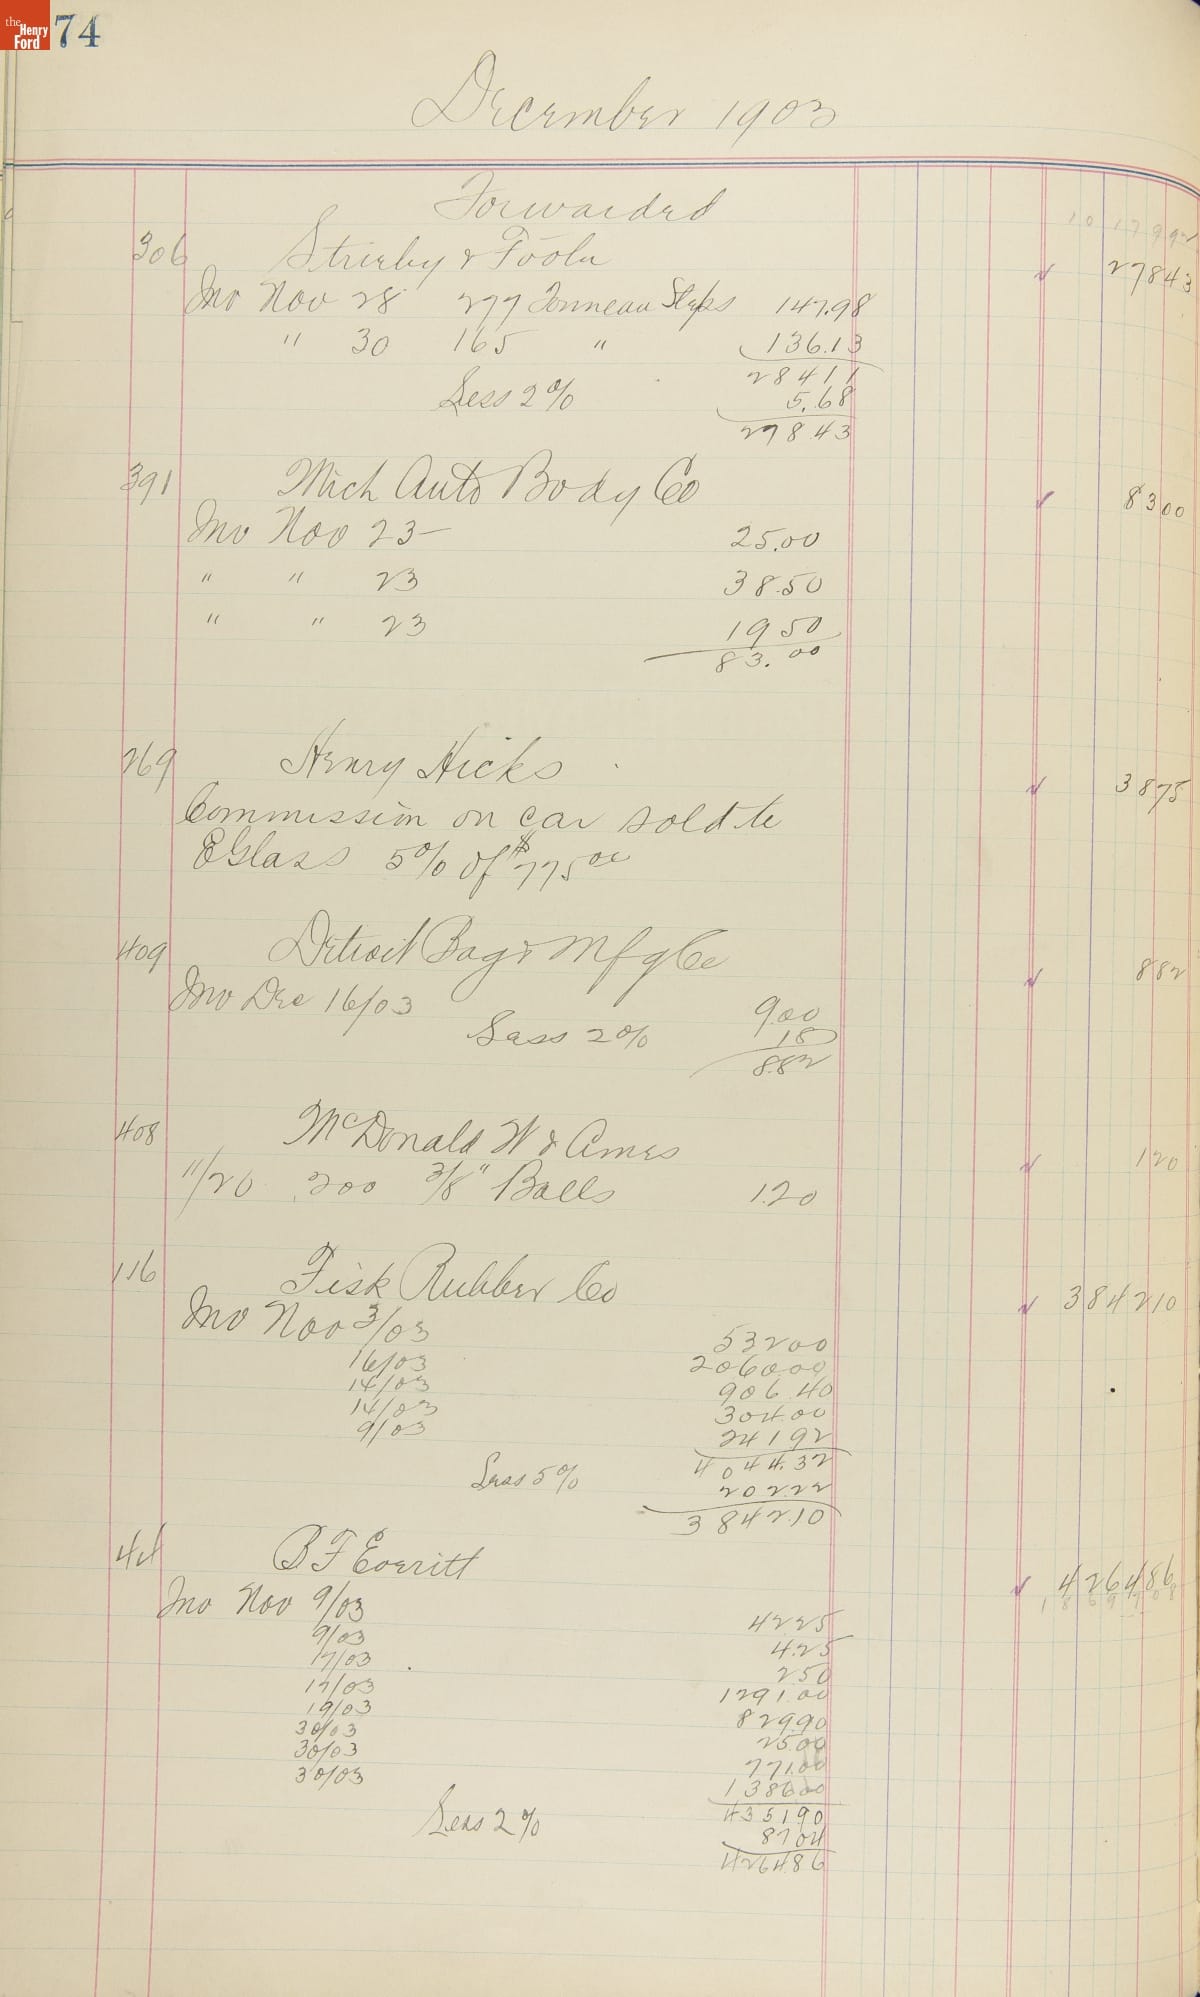 the Henry Ford
74
December 1903
Forwarded
306 Strieby & Foote 278 43
Inv Nov 28 277 Tonneau Steps 147.98
" 30 165 " 136.13
284 11
Less 2% 5.68
278 43
391 Mich Auto Body Co 83 00
Inv Nov 23 25.00
" " 23 38.50
" " 23 19 50
83.00
269 Henry Hicks 38 75
Commission on car sold to
E Glass 5% of $775 00
409 Detroit Bag & Mfg Co 8 82
Inv Dec 16/03 9.00
Less 2% 18
8.82
408 McDonald W & Ames 1 20
11/20 200 3/8" Balls 1.20
116 Fisk Rubber Co 3842 10
Inv Nov 3/03 532 00
16/03 2060 00
14/03 906 40
14/03 304.00
9/03 241 92
4044.32
Less 5% 202.22
3842.10
44 B F Everitt 4264 86
Inv Nov 9/03 42 25
9/03 4.25
17/03 2 50
17/03 1291.00
19/03 829.90
30/03 25.00
30/03 771.00
30/03 1386 00
4351 90
Less 2% 87 04
4264 86